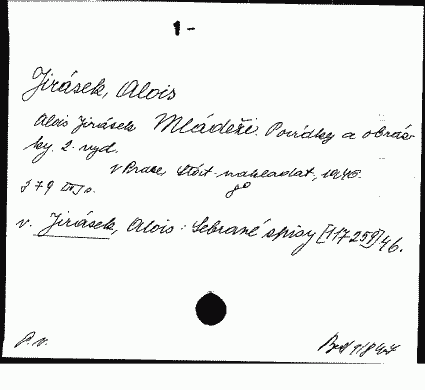 1-
Jirásek, Alois
Alois Jirásek Mládeži. Povídky a obráz-
ky. 2. vyd.
v Praze, Stát. nakladat, 1948.
379 s.
v. Jirásek, Alois: Sebrané spisy [117259] 46.
P. v.